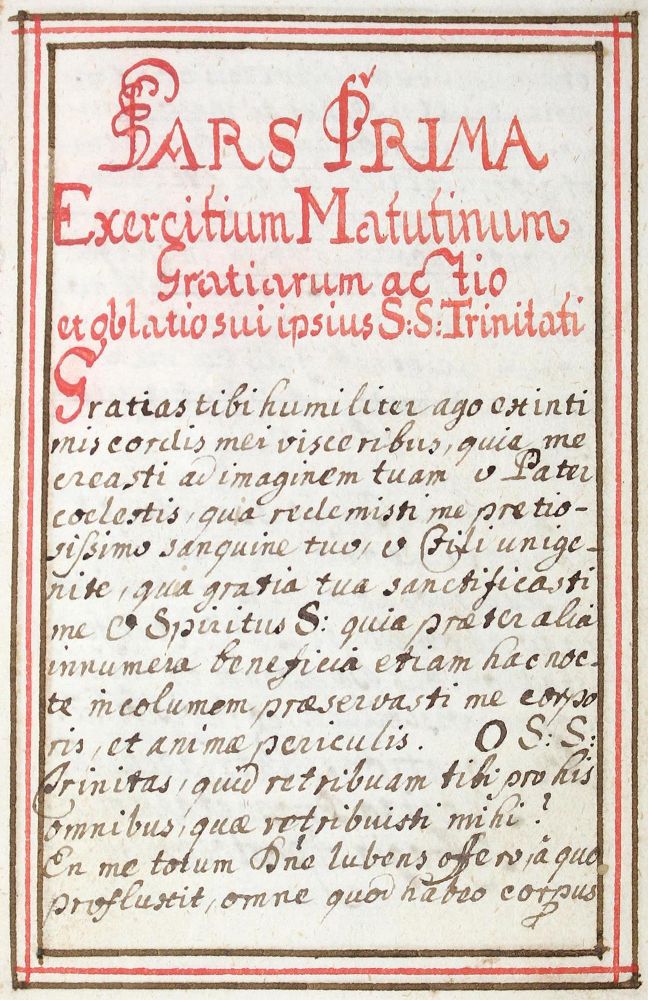 PARS PRIMA
Exercitium Matutinum
Gratiarum actio
et oblatio sui ipsius S:S: Trinitati
Gratias tibi humiliter ago ex inti
mis cordis mei visceribus, quia me
creasti ad imaginem tuam o Pater
coelestis, quia redemisti me pretio-
sissimo sanquine tuo, o Fili unige-
nite, quia gratia tua sanctificasti
me O Spiritus S: quia præter alia
innumera beneficia etiam hac noc-
te incolumem præservasti me corpo
ris, et animæ periculis. O S: S:
Trinitas, quid retribuam tibi pro his
omnibus, quæ retribuisti mihi?
En me totum Dñe lubens offero, à quo
profluxit, omne quod habeo corpus